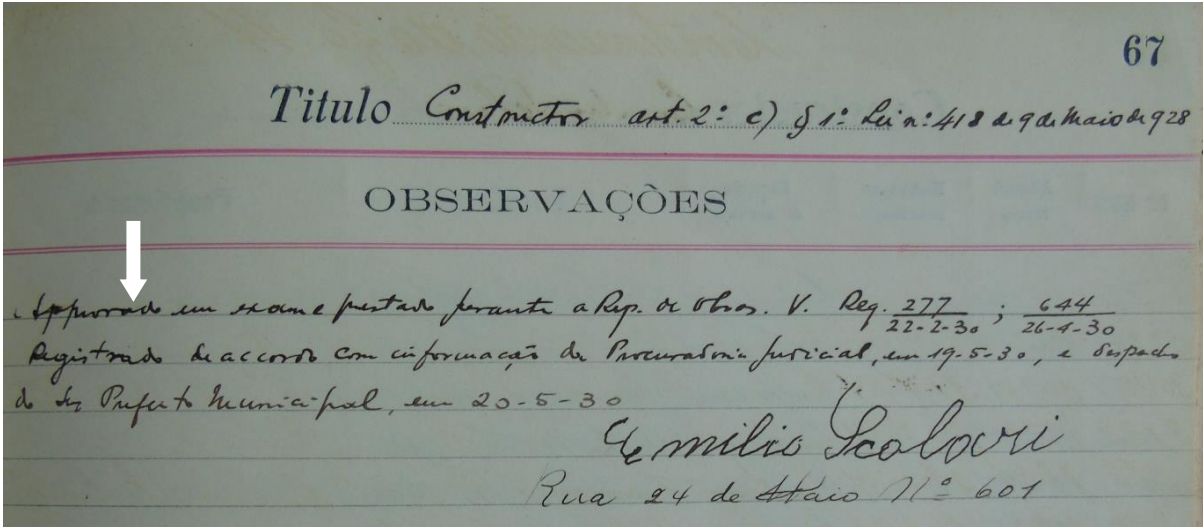 67
Titulo Constructor art. 2º c) § 1º Lei nº 418 de 9 de Maio de 928
OBSERVAÇÕES
Approvado em exame prestado perante a Rep. de Obras. V. Req. 277/22-2-30 ; 644/26-4-30
Registrado de accordo com informação da Procuradoria Judicial, em 19-5-30, e despacho
do Snr Prefeito Municipal, em 20-5-30
Emilio Scolari
Rua 24 de Maio Nº 601